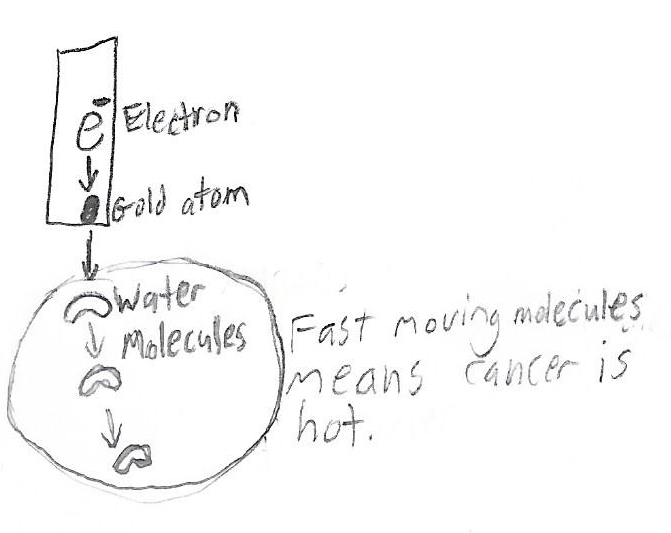 e⁻ Electron
Gold atom
Water
Molecules
Fast moving molecules
means cancer is
hot.